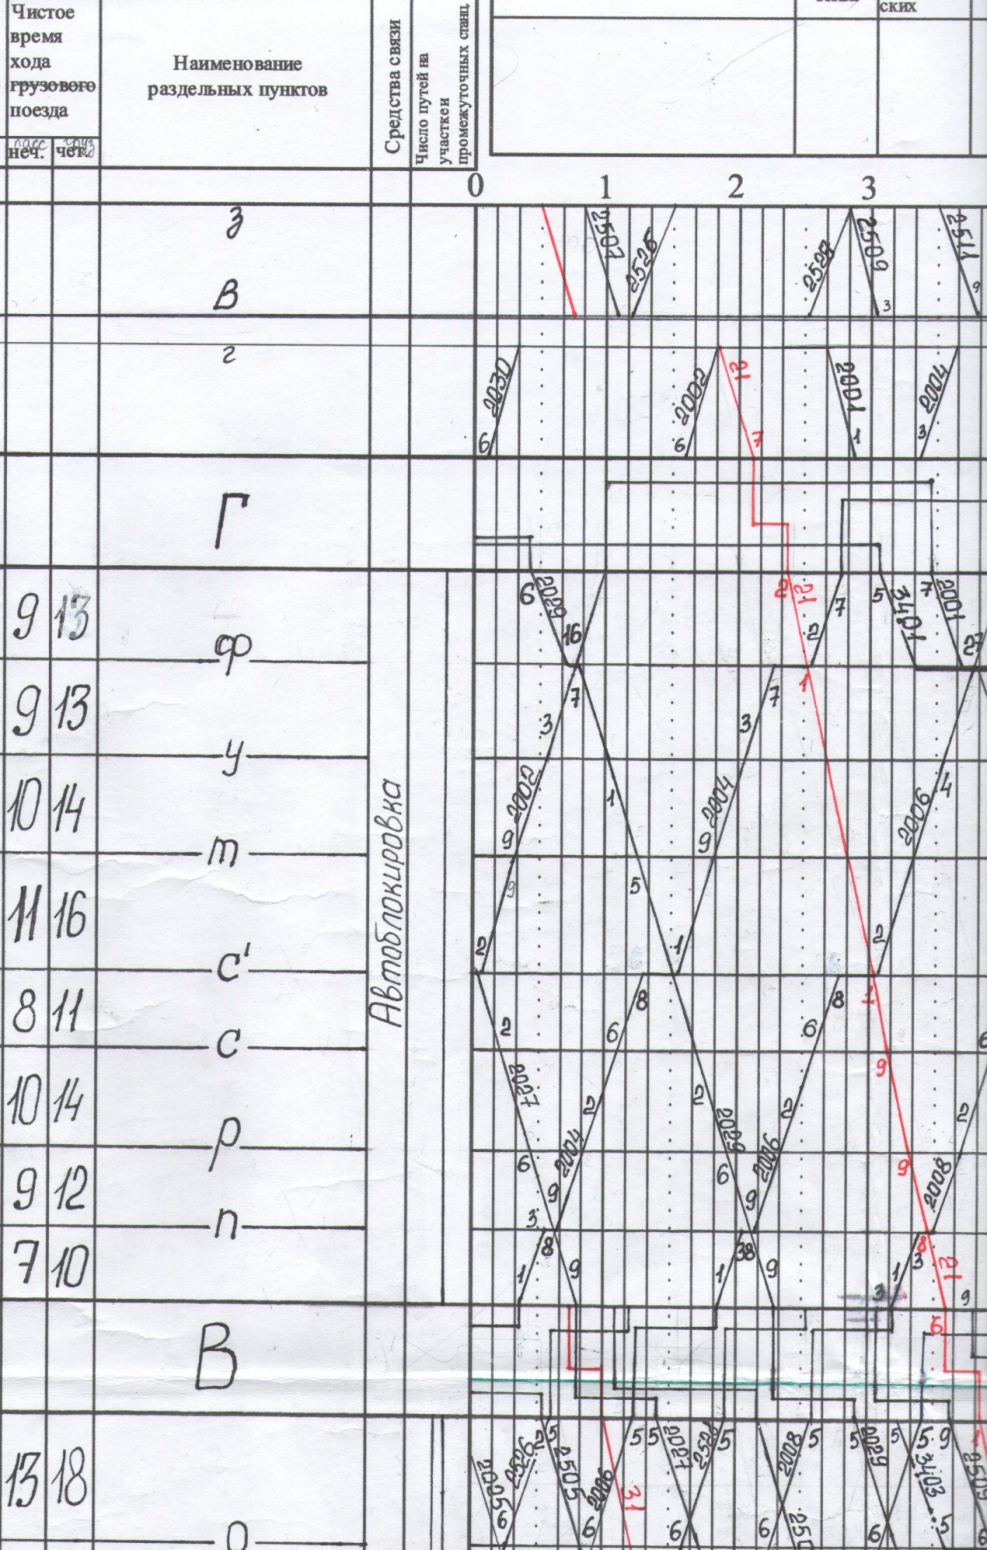 ских
Чистое
время
хода
грузового
поезда
неч. чет.
Наименование
раздельных пунктов
Средства связи
Число путей на
участке и
промежуточных станц.
0 1 2 3
З
2507 2526 2528 2509 3 2511 9
В
г
2030 6 2002 6 21 7 2001 1 2004 3
Г
9 13
6 2029 16 2 21 2 7 5 3401 7 2001 27
ф
9 13
7 3 7 3 1
у
10 14
2002 9 1 2004 9 2006 4
т
11 16
9 2 5 1 2
с'
8 11
2 8 6 8 6 1 6
с
10 14
2027 2 2 2029 2 9 2
р
9 12
6 2004 9 3 6 2006 9 9 2008
п
7 10
8 1 9 38 1 9 8 1 3 21 3 9
В
6
Автоблокировка
13 18
2025 6 2526 2 5 2505 6 2006 31 5 5 2027 6 2528 5 2008 5 5 2029 6 5 3403 5 9 2509 6
о